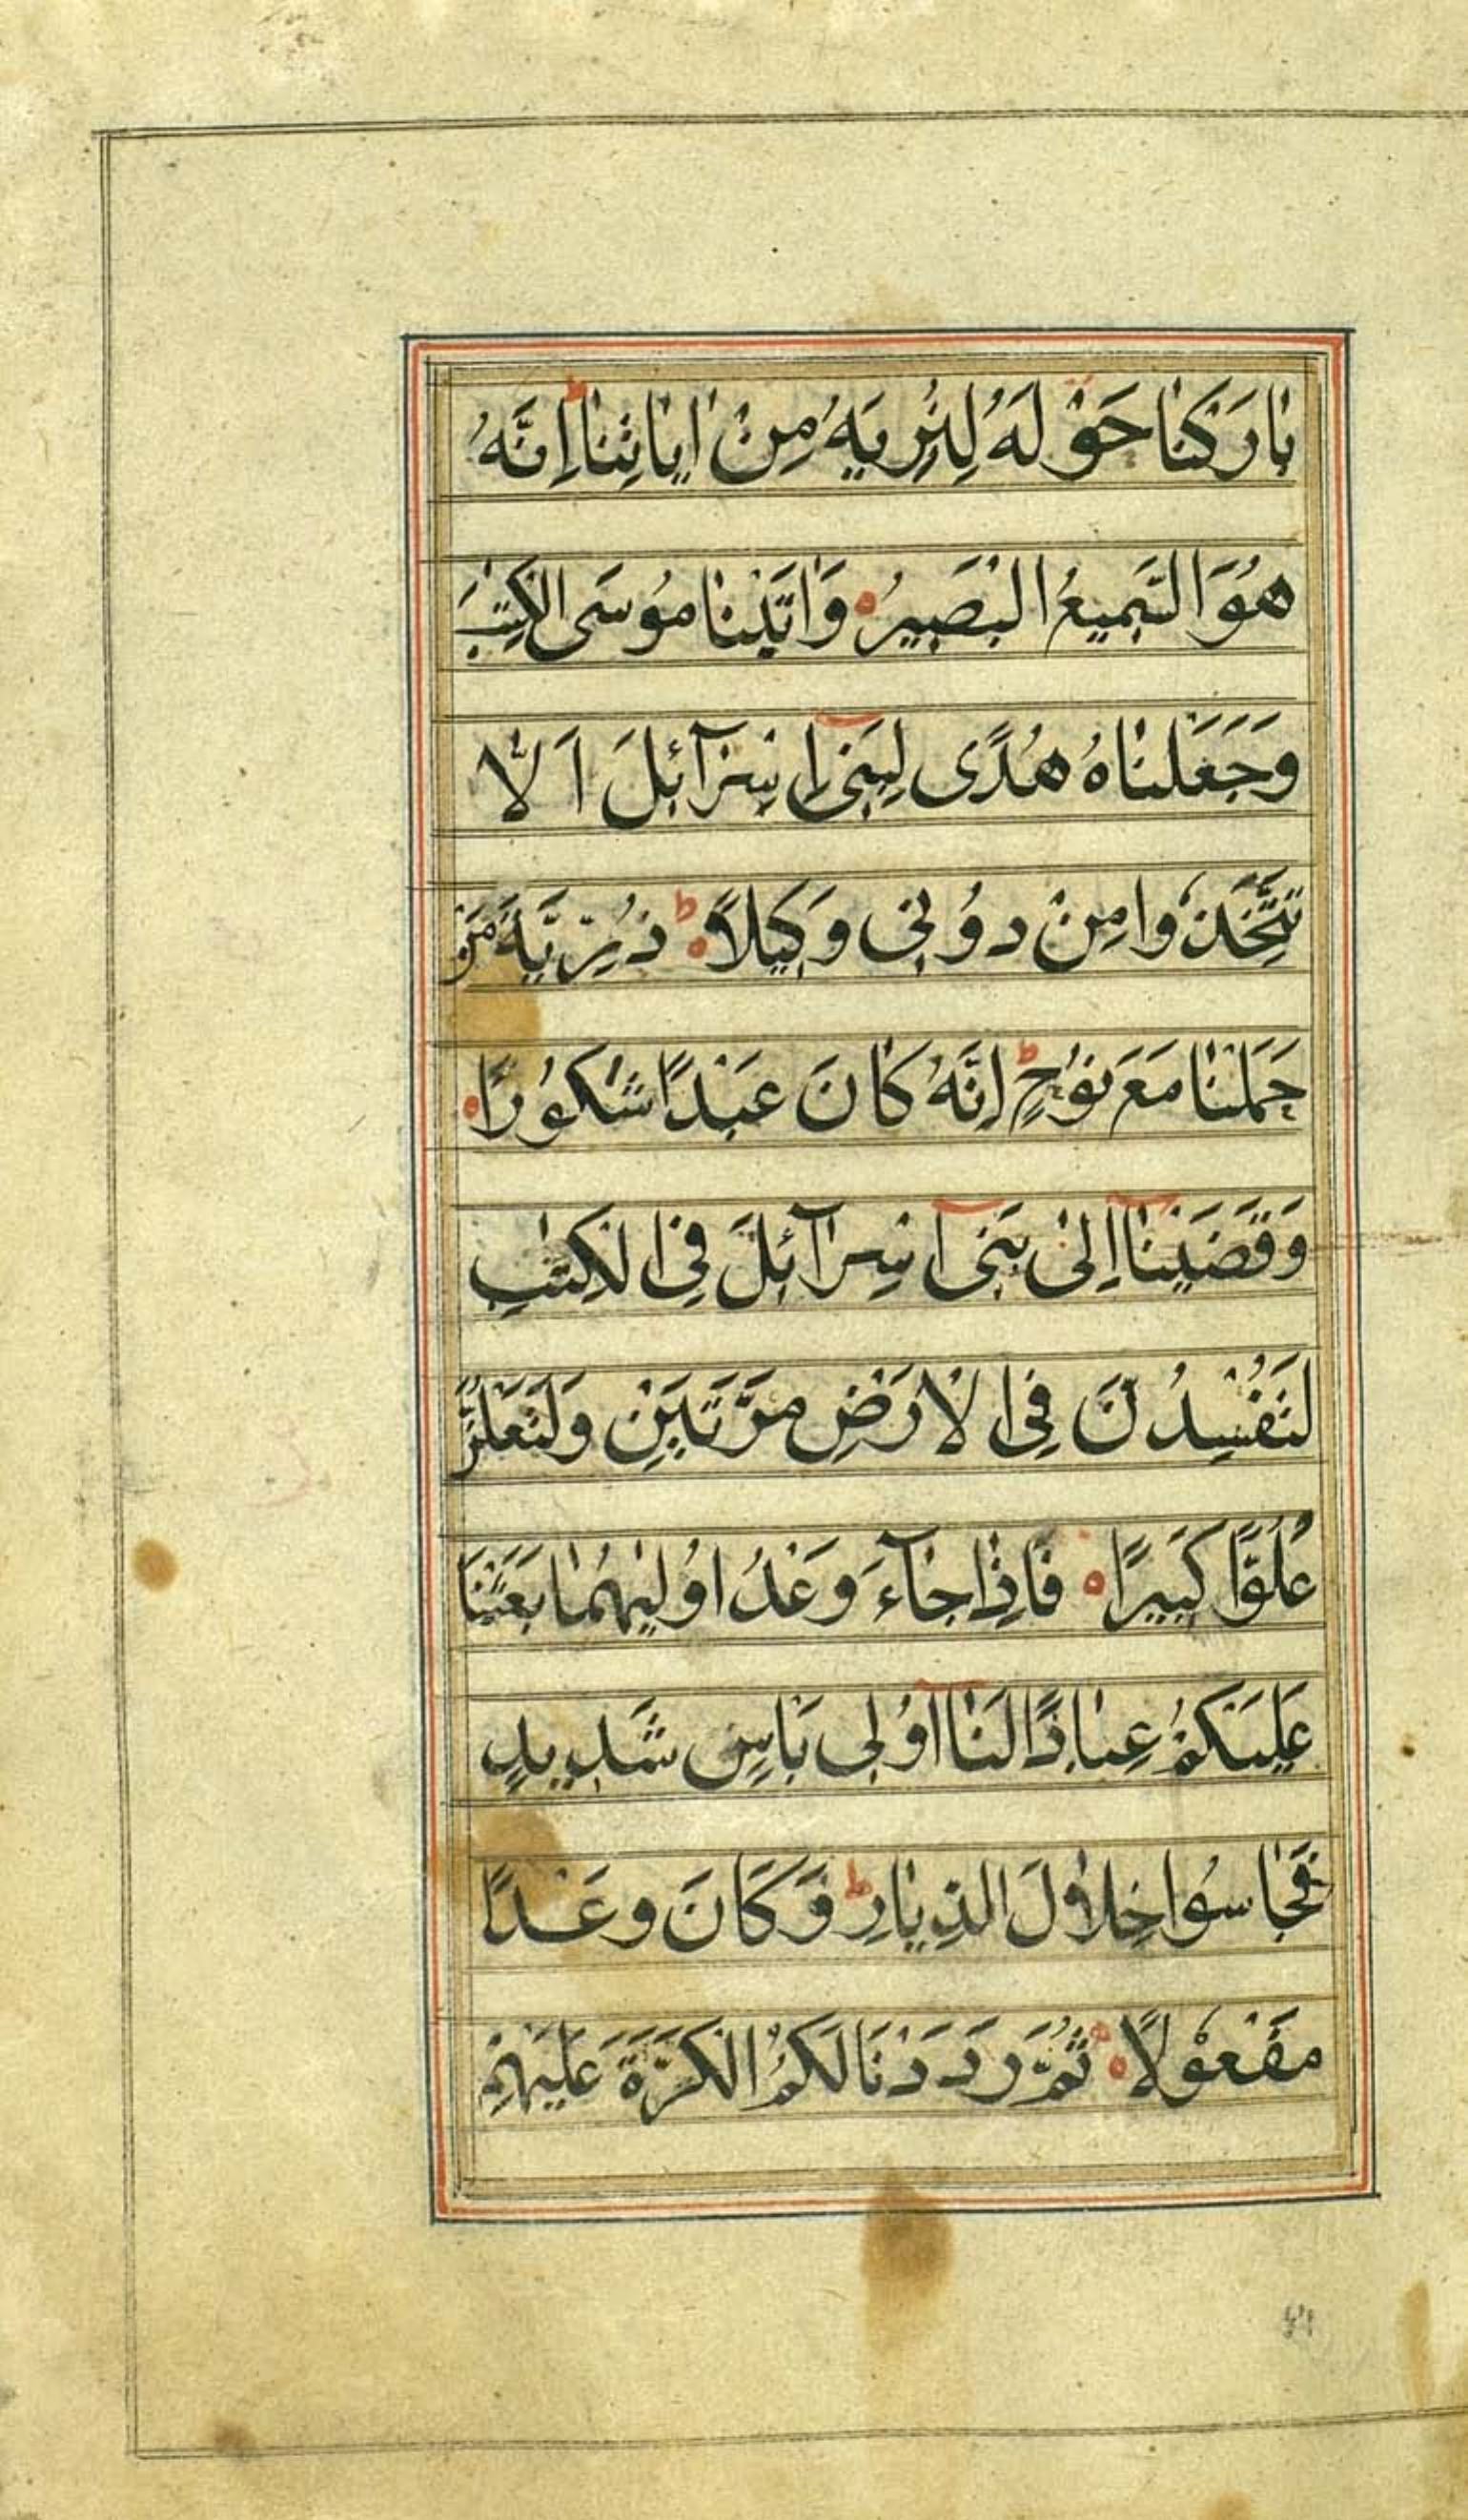 بَارَكْنَا حَوْلَهُ لِنُرِيَهُ مِنْ اٰيَاتِنَا ط اِنَّهُ
هُوَ السَّمِيعُ الْبَصِيرُ ه وَاٰتَيْنَا مُوسَى الْكِتٰبَ
وَجَعَلْنَاهُ هُدًى لِبَنِىٓ اِسْرَآئِلَ اَلَّا
تَتَّخِذُوا مِنْ دُونِى وَكِيلًا ط ه ذُرِّيَّةَ مَنْ
حَمَلْنَا مَعَ نُوْحٍ ط اِنَّهُ كَانَ عَبْدًا شَكُوْرًا ه
وَقَضَيْنَآ اِلٰى بَنِىٓ اِسْرَآئِلَ فِى الْكِتٰبِ
لَتُفْسِدُنَّ فِى الْاَرْضِ مَرَّتَيْنِ وَلَتَعْلُنَّ
عُلُوًّا كَبِيرًا ه فَاِذَا جَآءَ وَعْدُ اُوْلٰيهُمَا بَعَثْنَا
عَلَيْكُمْ عِبَادًا لَنَآ اُولِى بَاْسٍ شَدِيدٍ
فَجَاسُوا خِلَالَ الدِّيَارِ ط وَكَانَ وَعْدًا
مَفْعُوْلًا ه ثُمَّ رَدَدْنَا لَكُمُ الْكَرَّةَ عَلَيْهِمْ